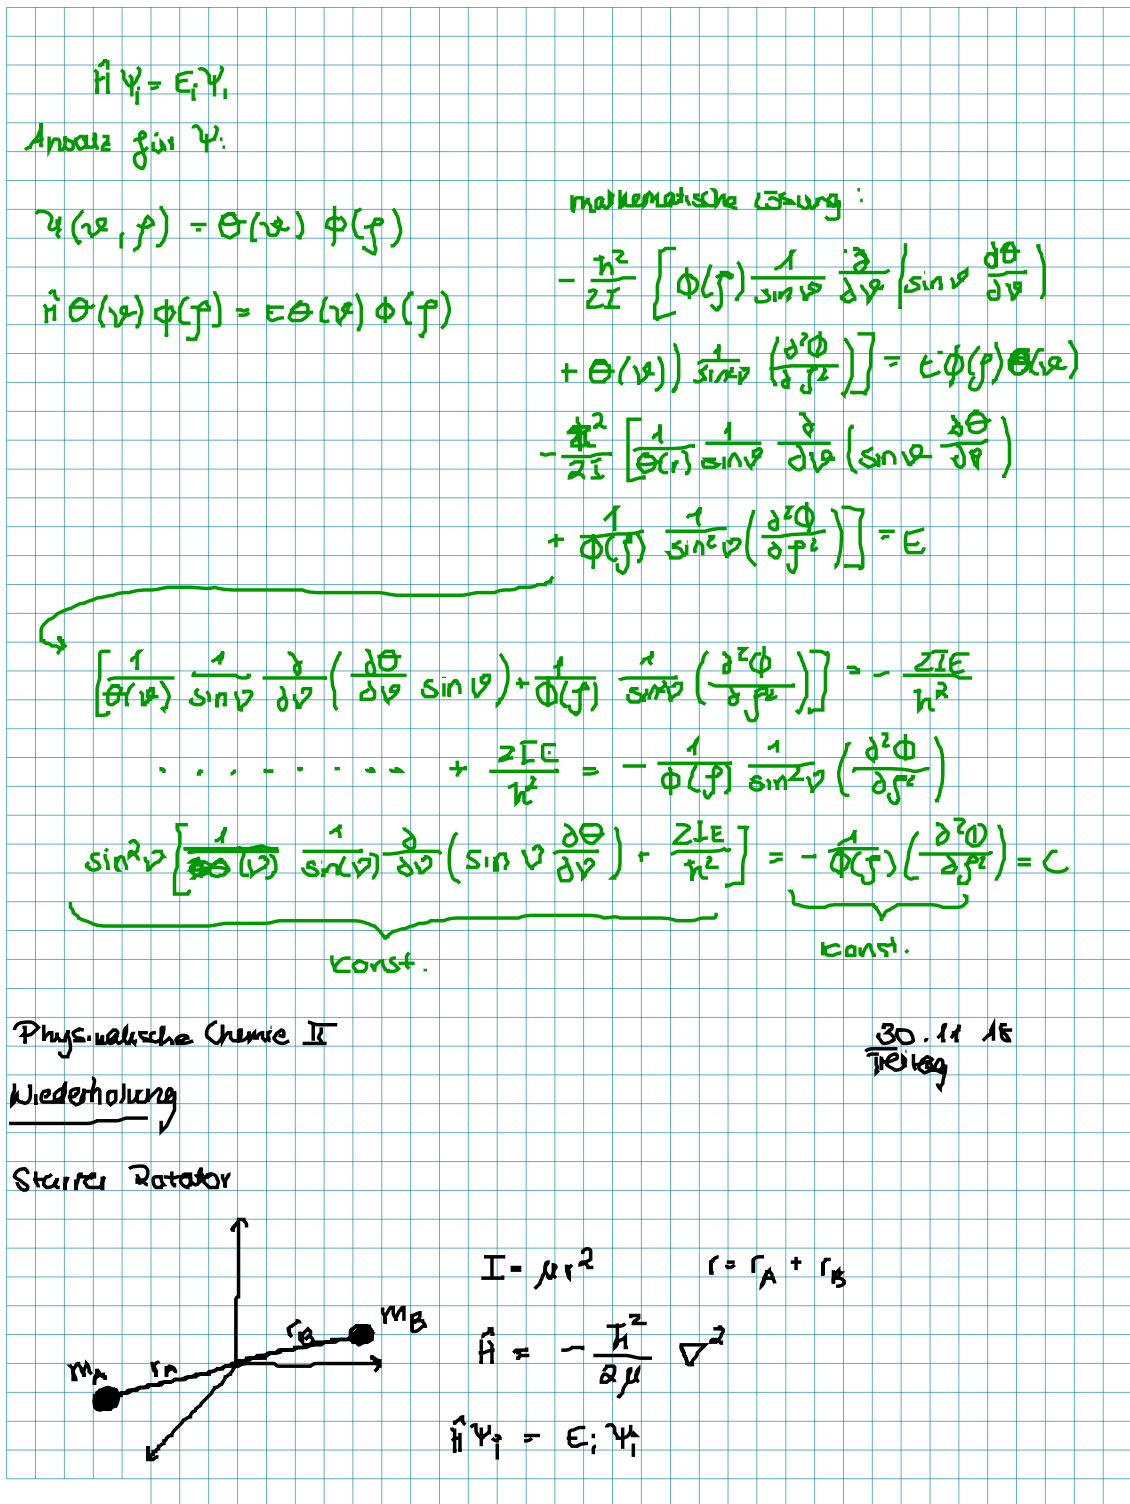 Ĥ Ψi = Ei Ψi
Ansatz für Ψ:
Ψ(ϑ, φ) = Θ(ϑ) ϕ(φ)
Ĥ Θ(ϑ) ϕ(φ) = E Θ(ϑ) ϕ(φ)
mathematische Lösung :
- ħ²/2I [ϕ(φ) 1/sin ϑ ∂/∂ϑ (sin ϑ dΘ/dϑ)
+ Θ(ϑ)) 1/sin²ϑ (∂²ϕ/∂φ²)] = E ϕ(φ) Θ(ϑ)
- ħ²/2I [1/Θ(ϑ) 1/sin ϑ ∂/∂ϑ (sin ϑ ∂Θ/∂ϑ)
+ 1/ϕ(φ) 1/sin²ϑ (∂²ϕ/∂φ²)] = E
[1/Θ(ϑ) 1/sin ϑ ∂/∂ϑ (∂Θ/∂ϑ sin ϑ) + 1/ϕ(φ) 1/sin²ϑ (∂²ϕ/∂φ²)] = - 2IE/ħ²
. . . . . . . . . + 2IE/ħ² = - 1/ϕ(φ) 1/sin²ϑ (∂²ϕ/∂φ²)
sin²ϑ [1/Θ(ϑ) 1/sin(ϑ) ∂/∂ϑ (sin ϑ ∂Θ/∂ϑ) + 2IE/ħ²] = - 1/ϕ(φ) (∂²ϕ/∂φ²) = C
konst. konst.
Physikalische Chemie II 30.11 18
Freitag
Wiederholung
Starrer Rotator
I = μr² r = rA + rB
mB
rB
mA rA
Ĥ = - ħ²/2μ ∇²
Ĥ Ψi = Ei Ψi